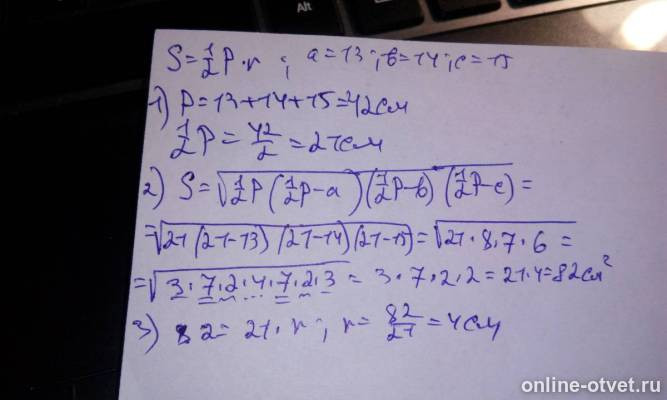 S=1/2 P·r ; a=13 ; b=14 ; c=15
1) P=13+14+15=42см
1/2 P = 42/2 = 21см
2) S=√(1/2 P (1/2 P-a) (1/2 P-b) (1/2 P-c)) =
=√(21 (21-13) (21-14) (21-15)) = √(21·8·7·6) =
=√(3·7·2·4·7·2·3) = 3·7·2·2=21·4=82см²
3) 82=21·r ; r= 82/21 =4см
online-otvet.ru